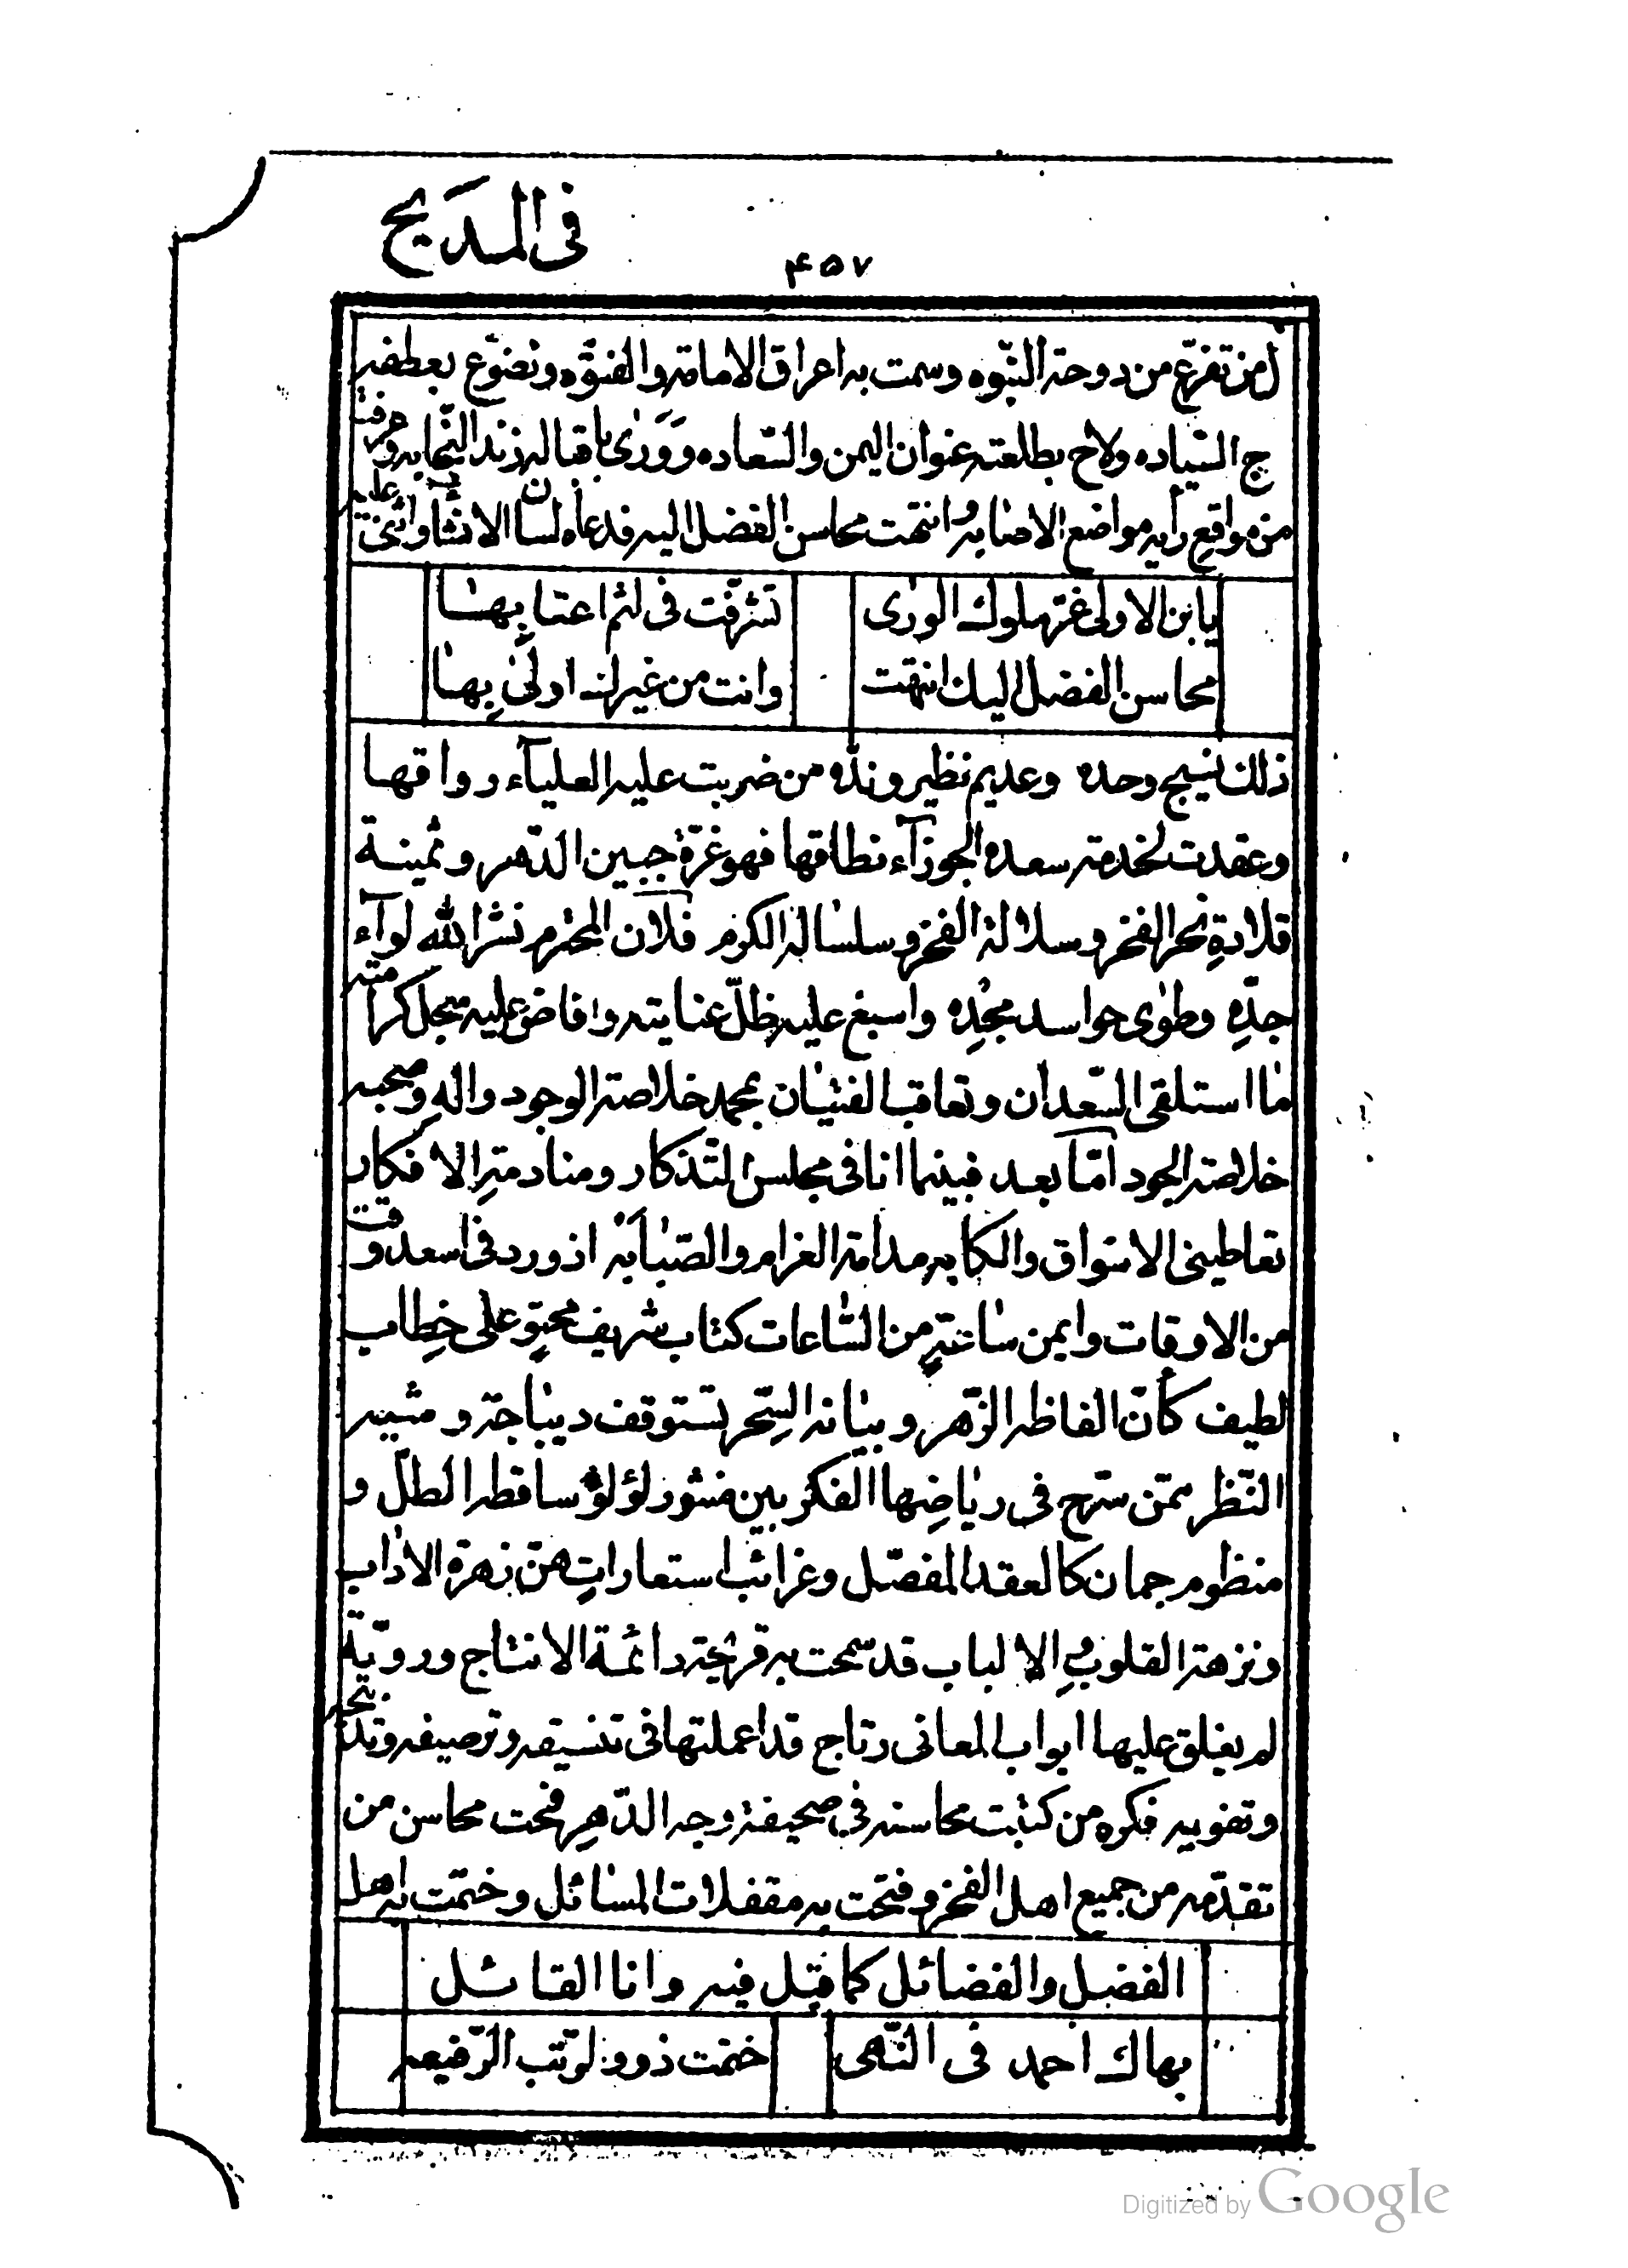 فى المديح
۴۵۷
ل من تفرّع من دوحة النبّوه وسمت به اعراق الامامة والفتوّه وتضوّع بعطفه
ج السّياده ولاح بطلعته عنوان اليمن والسّعاده وورى باقباله زند النّجابه وعرفت
من مواقع رأيه مواضع الاصابه وانتهت محاسن الفضل اليه فدعاه لسان الانشاء واثنى عليه
يابن الاولى غرّ ملوك الورى
تشرّفت فى لثم اعتابها
محاسن الفضل اليك انتهت
وانت من غيرك اولى بها
ذلك نسيج وحده وعديم نظيره ونّده من ضربت عليه العلياء رواقها
وعقدت لخدمة سعده الجوزآء نطاقها فهو غرّة جبين الدّهر وثمينة
قلادةِ نحر الفخر وسلالة الفخر وسلسالة الكرم فلان المحترم نشر الله لوآء
جدّهِ وطوى حواسد مجدِه واسبغ عليه ظلّ عنايته وافاض عليه سجل كرامته
ما استلقى السّعدان وتعاقب الفتيان بمحمد خلاصة الوجود واله وصحبه
خلاصة الجود امّا بعد فبينما انا فى مجلس التّذكار ومنادمةِ الافكار
تعاطينى الاشواق والكابه مدامة الغرام والصّبابه اذ ورد فى اسعد وقت
من الاوقات وايمن ساعةٍ من السّاعات كتاب شريف محتوٍ على خِطاب
لطيف كأنّ الفاظه الزّهر وبيانه السِّحر تستوقف ديباجة وشيه
النّظر ممّن سرّح فى رياضِها الفكر بين منثور لؤلؤ ساقطه الطلّ و
منظوم جمان كالعقد المفصّل وغرائب استعاراتٍ هنّ زهرة الاداب
ونزهة القلوبِ والالباب قد سمحت به قريحة دائمة الانتاج ورويّة
لم يغلق عليها ابواب المعانى رتاج قد اعملتها فى تنسيقه وترصيفه وتدبّجه
وتفويه فكره من كتبت محاسنه فى صحيفة وجه الدّهرِ فمحت محاسن من
تقدّمه من جميع اهل الفخر وفتحت به مقفلات المسائل وختمت به اهل
الفضل والفضائل كما قيل فيه وانا القائل
بهاك احمد فى النّهى
ختمت ذوو الرّتب الرّفيعه
Digitized by Google